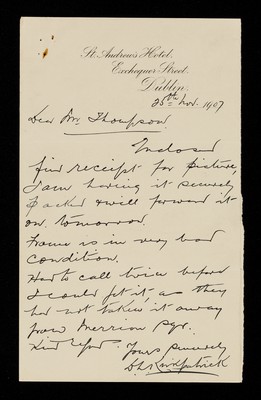 St. Andrew's Hotel,
Exchequer Street.
Dublin.
25th Nov. 1907
Dear Mr. Thompson.
Enclosed
find receipt for picture,
I am having it securely
packed & will forward it
on tomorrow.
Frame is in very bad
condition.
Had to call twice before
I could get it, as they
had not taken it away
from Merrion Sqr.
Kind regds. Yours sincerely
Kirkpatrick